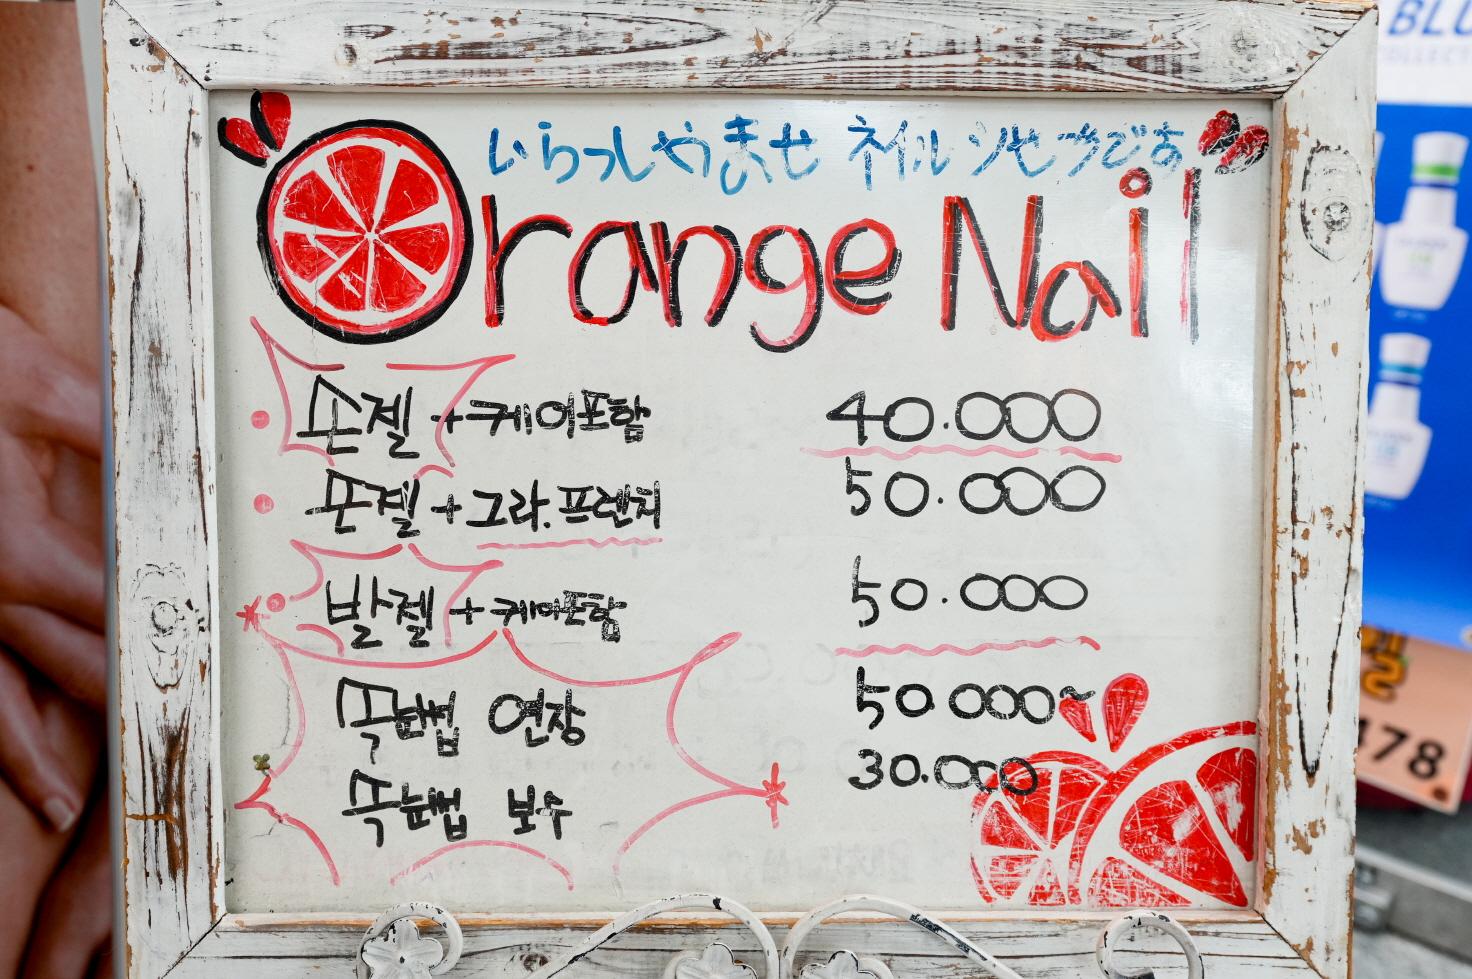 BLU
COLLECT
いらっしゃませ ネイル ツセヲです
Orange Nail
손젤 + 케어포함 40.000
손젤 + 그라.프렌치 50.000
발젤 + 케어포함 50.000
속눈썹 연장 50.000~
속눈썹 보수 30.000
478